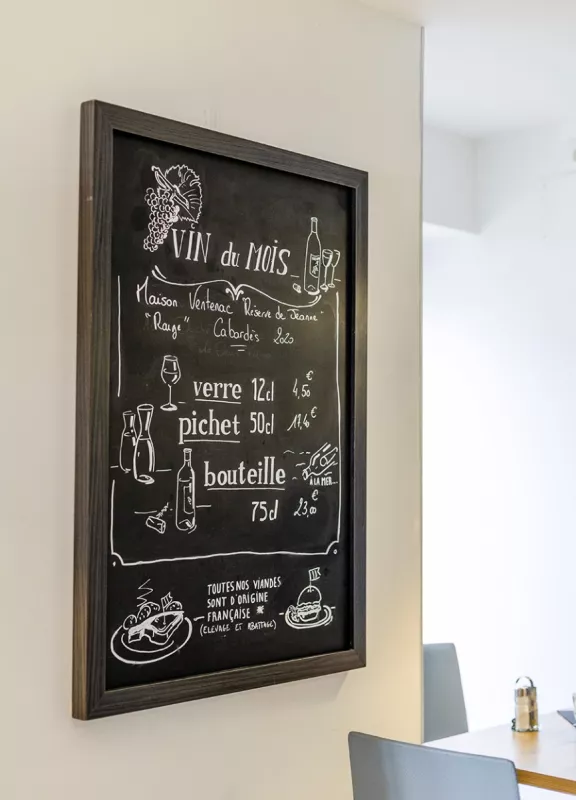 VIN du MOIS
Maison Ventenac "Réserve de Jeanne"
"Rouge" Cabardès 2020
verre 12cl 4,50€
pichet 50cl 17,40€
bouteille
À LA MER...
75cl 23,00€
TOUTES NOS VIANDES
SONT D'ORIGINE
FRANÇAISE *
(ELEVAGE ET ABATTAGE)